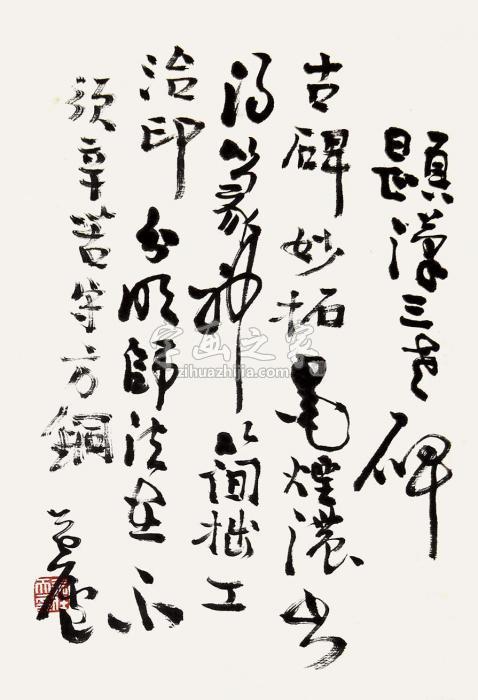 題漢三老碑
古碑妙拓墨煙濃
篆神簡拙工
治印分明師法在不
須辛苦方銅
字画之家
zihuazhijia.com